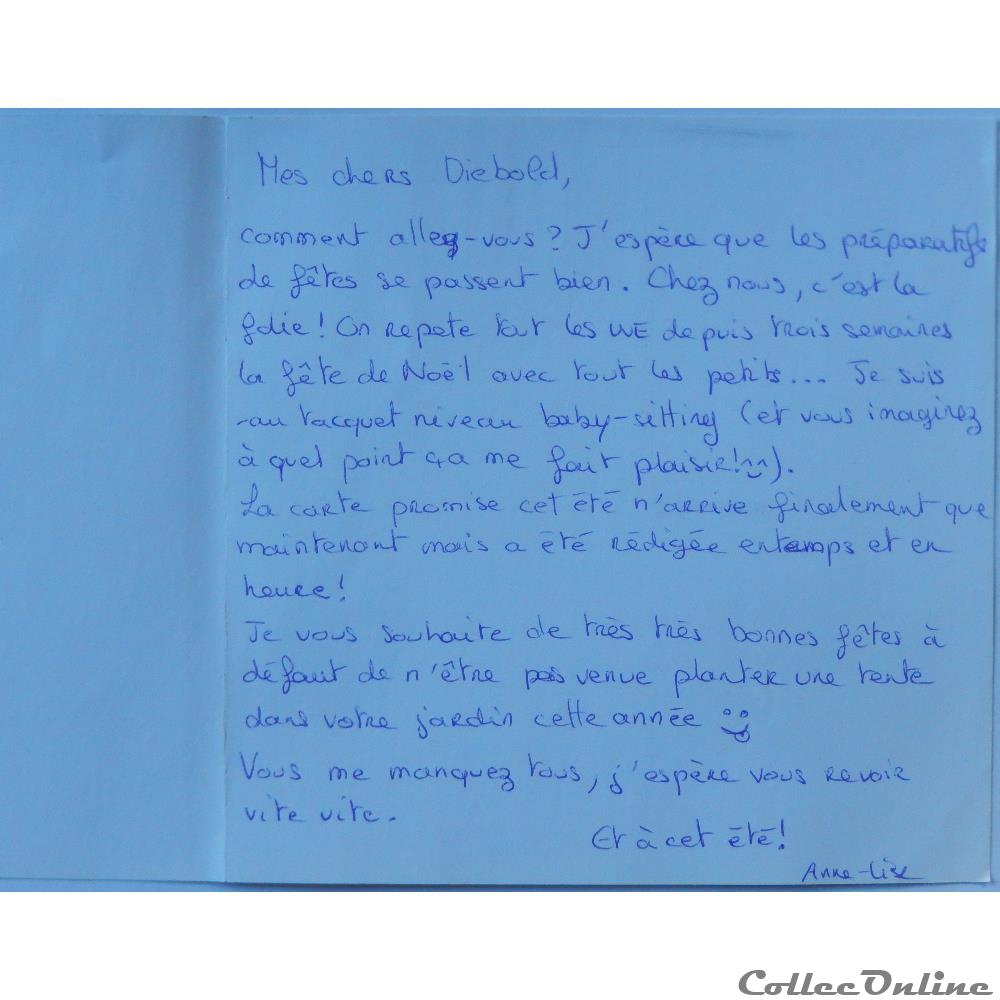 Mes chers Diebold,
comment allez-vous ? J'espère que les préparatifs
de fêtes se passent bien. Chez nous, c'est la
folie ! On repete tout les WE depuis trois semaines
la fête de Noël avec tout les petits... Je suis
au tacquet niveau baby-sitting (et vous imaginez
à quel point ça me fait plaisir! ^^).
La carte promise cet été n'arrive finalement que
maintenant mais a été rédigée entemps et en
heure !
Je vous souhaite de très très bonnes fêtes à
défaut de n'être pas venue planter une tente
dans votre jardin cette année
Vous me manquez tous, j'espère vous revoir
vite vite.
Et à cet été !
Anne-Lise
CollecOnline